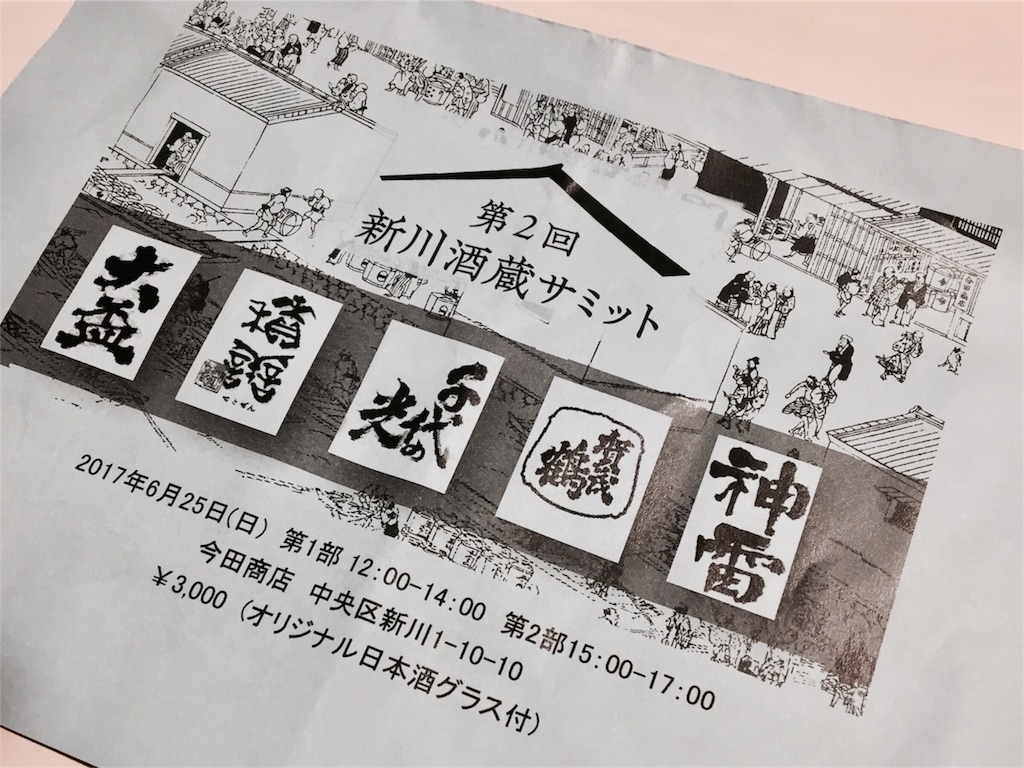 第2回
新川酒蔵サミット
大盃
積善
せきぜん
千代の光
賀茂鶴
神雷
2017年6月25日(日) 第1部 12:00-14:00 第2部15:00-17:00
今田商店 中央区新川1-10-10
￥3,000 (オリジナル日本酒グラス付)